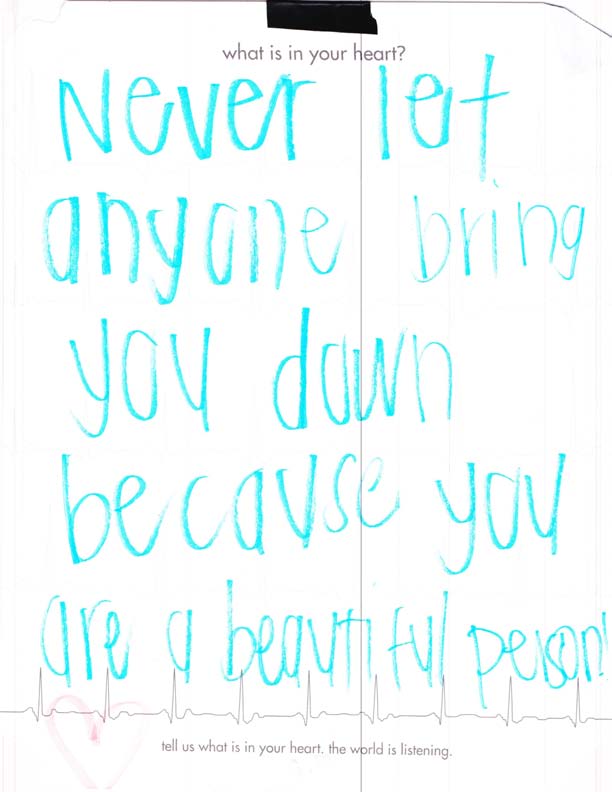 what is in your heart?
Never let
anyone bring
you down
because you
are a beautiful person!
tell us what is in your heart. the world is listening.